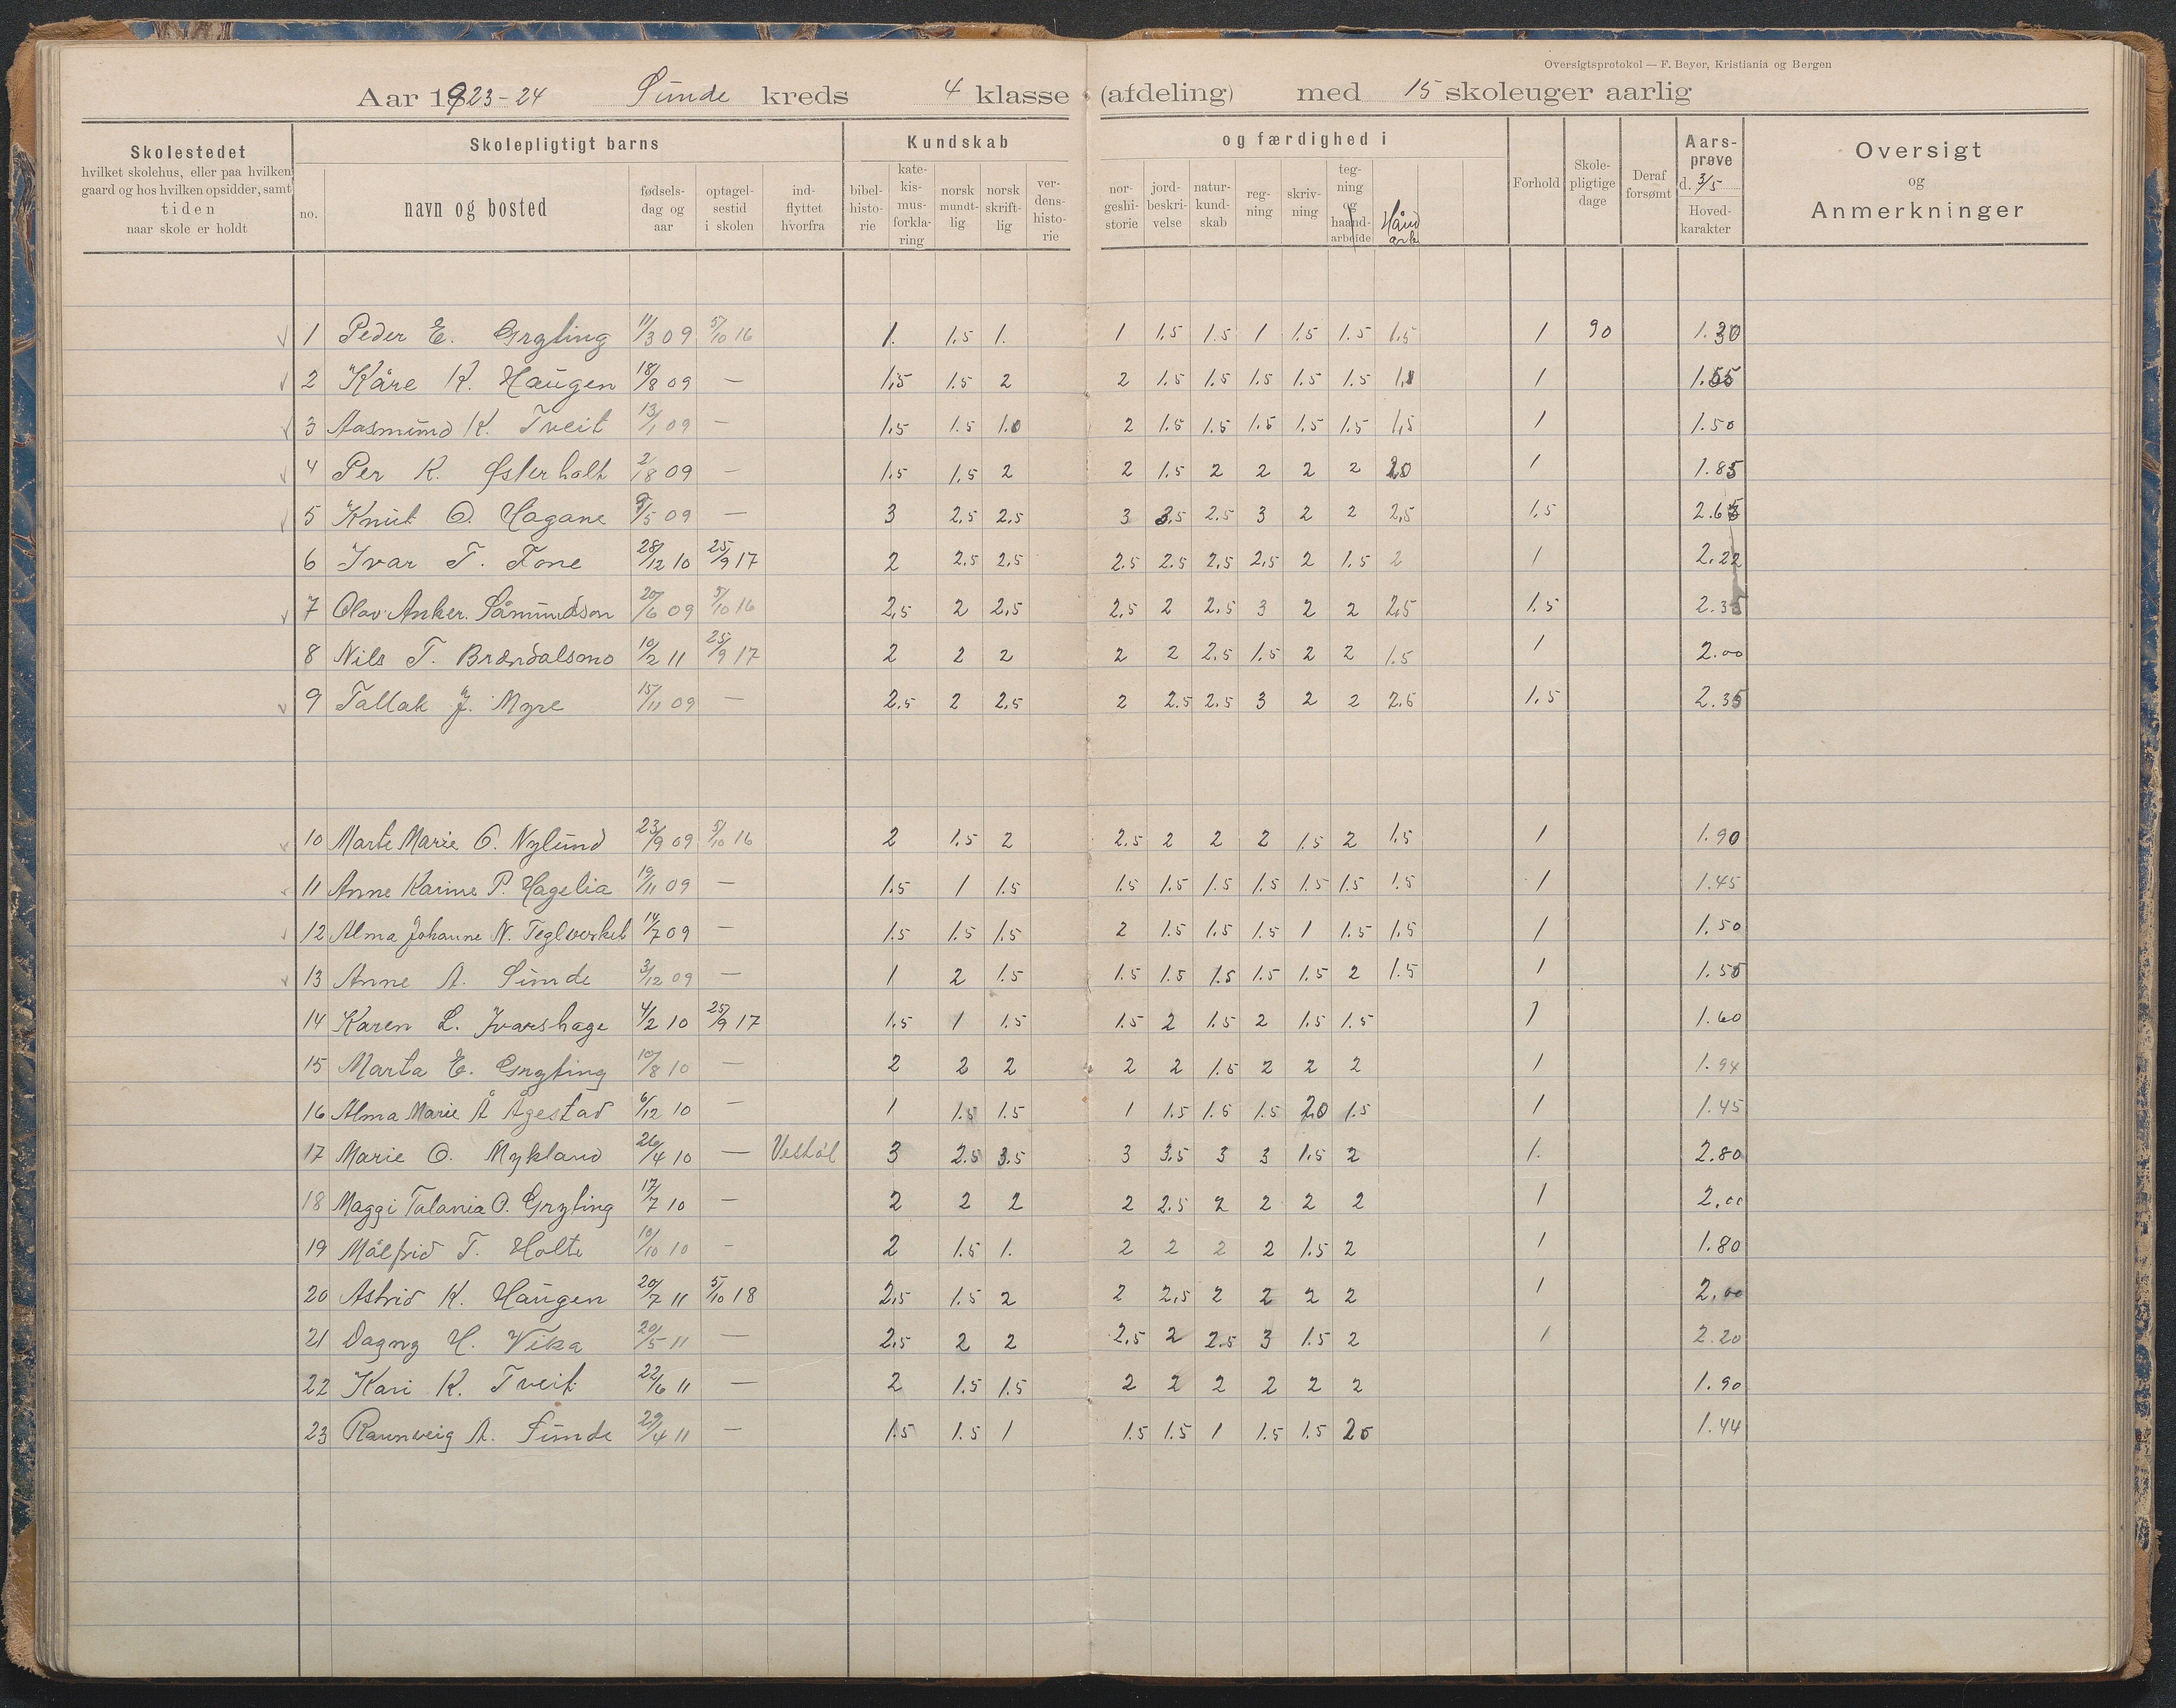 Oversigtsprotokol — F. Beyer, Kristiania og Bergen
Aar 1923-24 Sunde kreds 4 klasse (afdeling) med 15 skoleuger aarlig
Skolestedet
hvilket skolehus, eller paa hvilken
gaard og hos hvilken opsidder, samt
tiden
naar skole er holdt
Skolepligtigt barns
no.
navn og bosted
fødsels-
dag og
aar
optagel-
sestid
i skolen
ind-
flyttet
hvorfra
Kundskab
bibel-
histo-
rie
kate-
kis-
mus-
forkla-
ring
norsk
mundt-
lig
norsk
skrift-
lig
ver-
dens-
histo-
rie
og færdighed i
nor-
geshi-
storie
jord-
beskri-
velse
natur-
kund-
skab
reg-
ning
skriv-
ning
teg-
ning
og
haand-
arbeide
Hånd
arb
Forhold
Skole-
pligtige
dage
Deraf
forsømt
Aars-
prøve
d. 3/5
Hoved-
karakter
Oversigt
og
Anmerkninger
1 Peder E. Gryting 11/3 09 5/10 16 1. 1.5 1. 1 1.5 1.5 1 1.5 1.5 1.5 1 90 1.30
2 Kåre K. Haugen 18/8 09 — 1.5 1.5 2 2 1.5 1.5 1.5 1.5 1.5 1 1.55
3 Aasmund K. Tveit 13/1 09 — 1.5 1.5 1.0 2 1.5 1.5 1.5 1.5 1.5 1.5 1 1.50
4 Per K. Østerholt 2/8 09 — 1.5 1.5 2 2 1.5 2 2 2 2 2.0 1 1.85
5 Knut O. Hagane 9/5 09 — 3 2.5 2.5 3 3.5 2.5 3 2 2 2.5 1.5 2.65
6 Ivar T. Tone 28/12 10 25/9 17 2 2.5 2.5 2.5 2.5 2.5 2.5 2 1.5 2 1 2.22
7 Olav Anker Såmundson 20/6 09 5/10 16 2.5 2 2.5 2.5 2 2.5 3 2 2 2.5 1.5 2.35
8 Nils T. Brændalsmo 10/2 11 25/9 17 2 2 2 2 2 2.5 1.5 2 2 1.5 1 2.00
9 Tallak J. Myre 15/11 09 — 2.5 2 2.5 2 2.5 2.5 3 2 2 2.5 1.5 2.35
10 Marte Marie O. Nylund 23/9 09 5/10 16 2 1.5 2 2.5 2 2 2 1.5 2 1.5 1 1.90
11 Anne Karine P. Hagelia 19/11 09 — 1.5 1 1.5 1.5 1.5 1.5 1.5 1.5 1.5 1.5 1 1.45
12 Alma Johanne N. Teglverket 14/7 09 — 1.5 1.5 1.5 2 1.5 1.5 1.5 1 1.5 1.5 1 1.50
13 Anne A. Sunde 3/12 09 — 1 2 1.5 1.5 1.5 1.5 1.5 1.5 2 1.5 1 1.55
14 Karen L. Ivarshage 4/2 10 25/9 17 1.5 1 1.5 1.5 2 1.5 2 1.5 1.5 1 1.60
15 Marta E. Gryting 10/8 10 — 2 2 2 2 2 1.5 2 2 2 1 1.94
16 Alma Marie Å Ågestad 6/12 10 — 1 1.5 1.5 1 1.5 1.5 1.5 2.0 1.5 1 1.45
17 Marie O. Mykland 26/4 10 — Vestøl 3 2.5 3.5 3 3.5 3 3 1.5 2 1. 2.80
18 Maggi Talania O. Gryting 17/7 10 — 2 2 2 2 2.5 2 2 2 2 1 2.00
19 Målfrid T. Holte 10/10 10 — 2 1.5 1. 2 2 2 2 1.5 2 1 1.80
20 Astrid K. Haugen 20/7 11 5/10 18 2.5 1.5 2 2 2.5 2 2 2 2 1 2.00
21 Dagny H. Vika 20/5 11 — 2.5 2 2 2.5 2 2.5 3 1.5 2 1 2.20
22 Kari K. Tveit 22/6 11 — 2 1.5 1.5 2 2 2 2 2 2 1.90
23 Raunveig A. Sunde 29/4 11 — 1.5 1.5 1 1.5 1.5 1 1.5 1.5 2.0 1.44